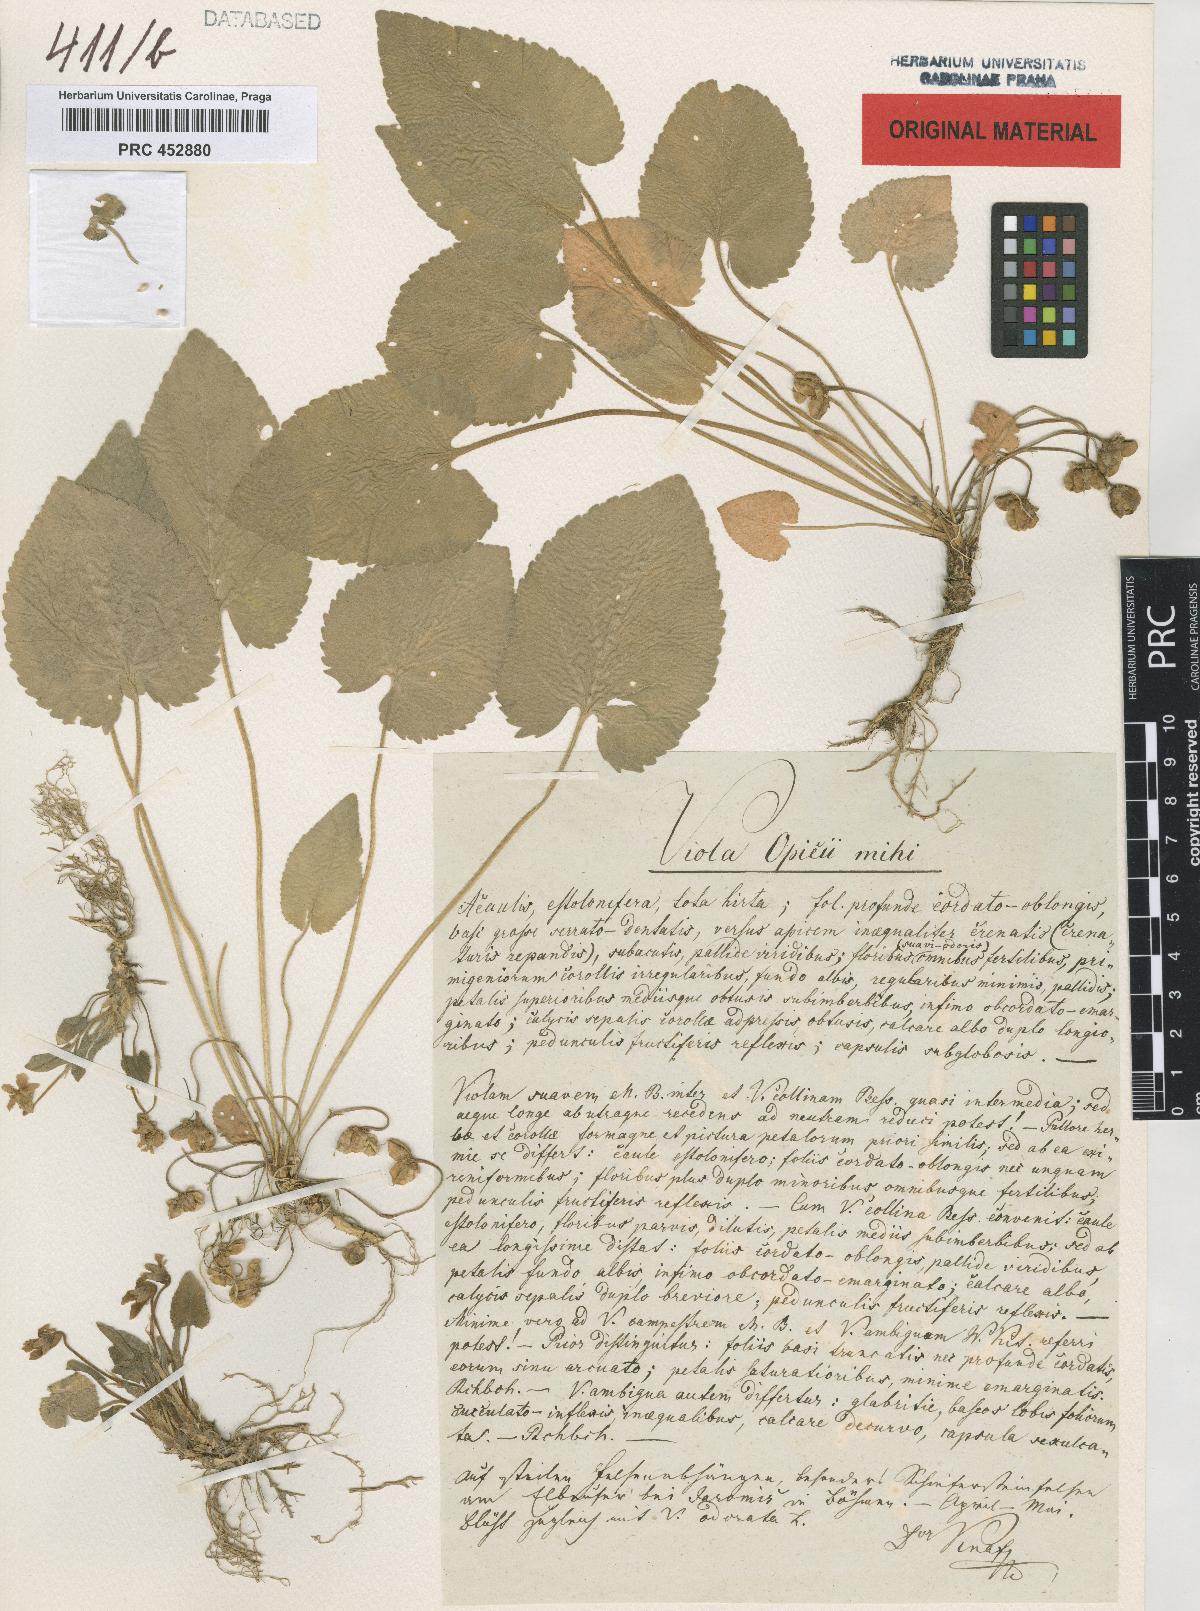 DATABASED
411/b
Herbarium Universitatis Carolinae, Praga
PRC 452880
HERBARIUM UNIVERSITATIS
CAROLINAE PRAHA
ORIGINAL MATERIAL
HERBARIUM UNIVERSITATIS
PRC
CAROLINAE PRAGENSIS
0 1 2 3 4 5 6 7 8 9 10
cm
copyright reserved
Viola Opičii mihi
Acaulis, estolonifera, tota hirta; fol. profunde cordato-oblongis,
basi grosse serrato-dentatis, versus apicem inæqualiter crenatis (crena-
turis repandis), subacutis, pallide viridibus; floribus (suavi-odoris) omnibus fertilibus, pri-
migeniorum corollis irregularibus, fundo albis, regularibus minimis, pallidis;
petalis superioribus mediisque obtusis subimberbibus, infimo obcordato-emar-
ginato; calycis sepalis corollæ adpressis obtusis, calcare albo duplo longio-
ribus; pedunculis fructiferis reflexis; capsulis subglobosis. —
Violam suavem M. B. inter et V. collinam Bess. quasi intermedia; sed
aeque longe ab utraque recedens ad neutram reduci potest! — Priori her-
bæ et corollæ formaque et pictura petalorum priori similis; sed ab ea exi-
mie se differt: caule estolonifero; foliis cordato-oblongis nec unquam
reniformibus; floribus plus duplo minoribus omnibusque fertilibus;
pedunculis fructiferis reflexis. — Cum V. collina Bess. convenit: caule
estolonifero, floribus parvis, dilutis, petalis mediis subimberbibus; sed ab
ea longissime distat: foliis cordato-oblongis, pallide viridibus,
petalis fundo albis, infimo obcordato-emarginato; calcare albo,
calycis sepalis duplo breviore; pedunculis fructiferis reflexis. —
Minime vero ad V. campestrem M. B. et V. ambiguam W. Kit. referri
potest! — Prior distinguitur: foliis basi truncatis nec profunde cordatis,
eorum sinu arcuato; petalis saturatioribus, minime emarginatis.
Rchbch. — V. ambigua autem differtur: glabritie, baseos lobis foliorum
cucullato-inflexis, inæqualibus, calcare decurvo, capsula sexulca-
ta. — Rchbch. —
Auf steilen Felsenabhängen, besonders Schiefersteinfelsen
am Elbeufer bei Jaroměř in Böhmen. — April - Mai.
Blüht zugleich mit V. odorata L.